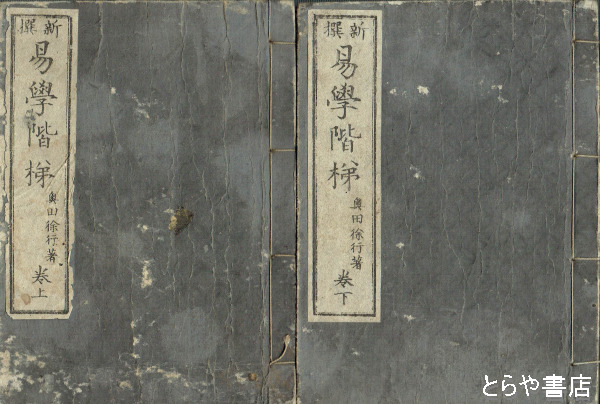 新撰
易學階梯
奥田徐行著
卷上
新撰
易學階梯
奥田徐行著
卷下
とらや書店